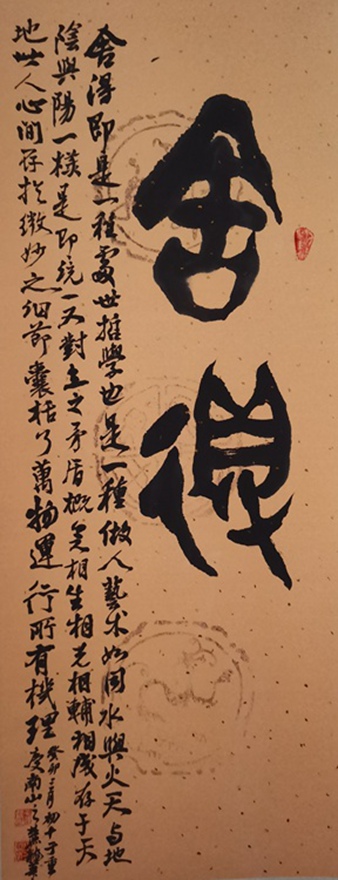 舍得
舍得即是一種處世哲學也是一種做人藝术如同水與火天与地
陰與陽一樣是即統一又對立之矛盾概念相生相克相輔相成存于天
地世人心間存於微妙之细節囊括了萬物運行所有機理
癸卯月初十
南山